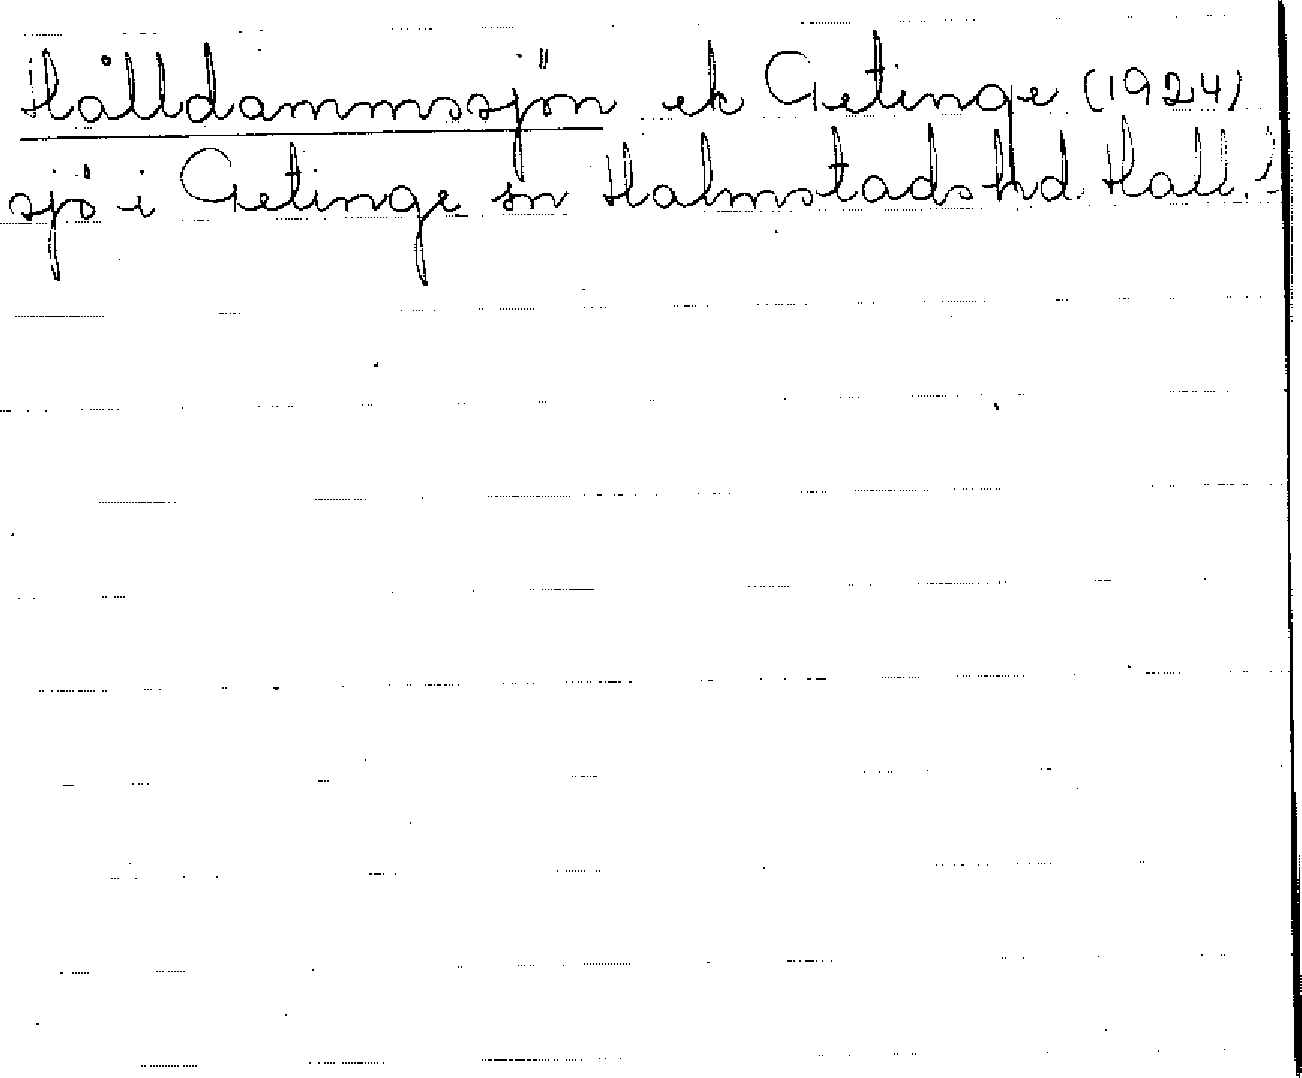 Hålldammssjön ek Getinge (1924)
sjö i Getinge sn Halmstads hd. Hall.